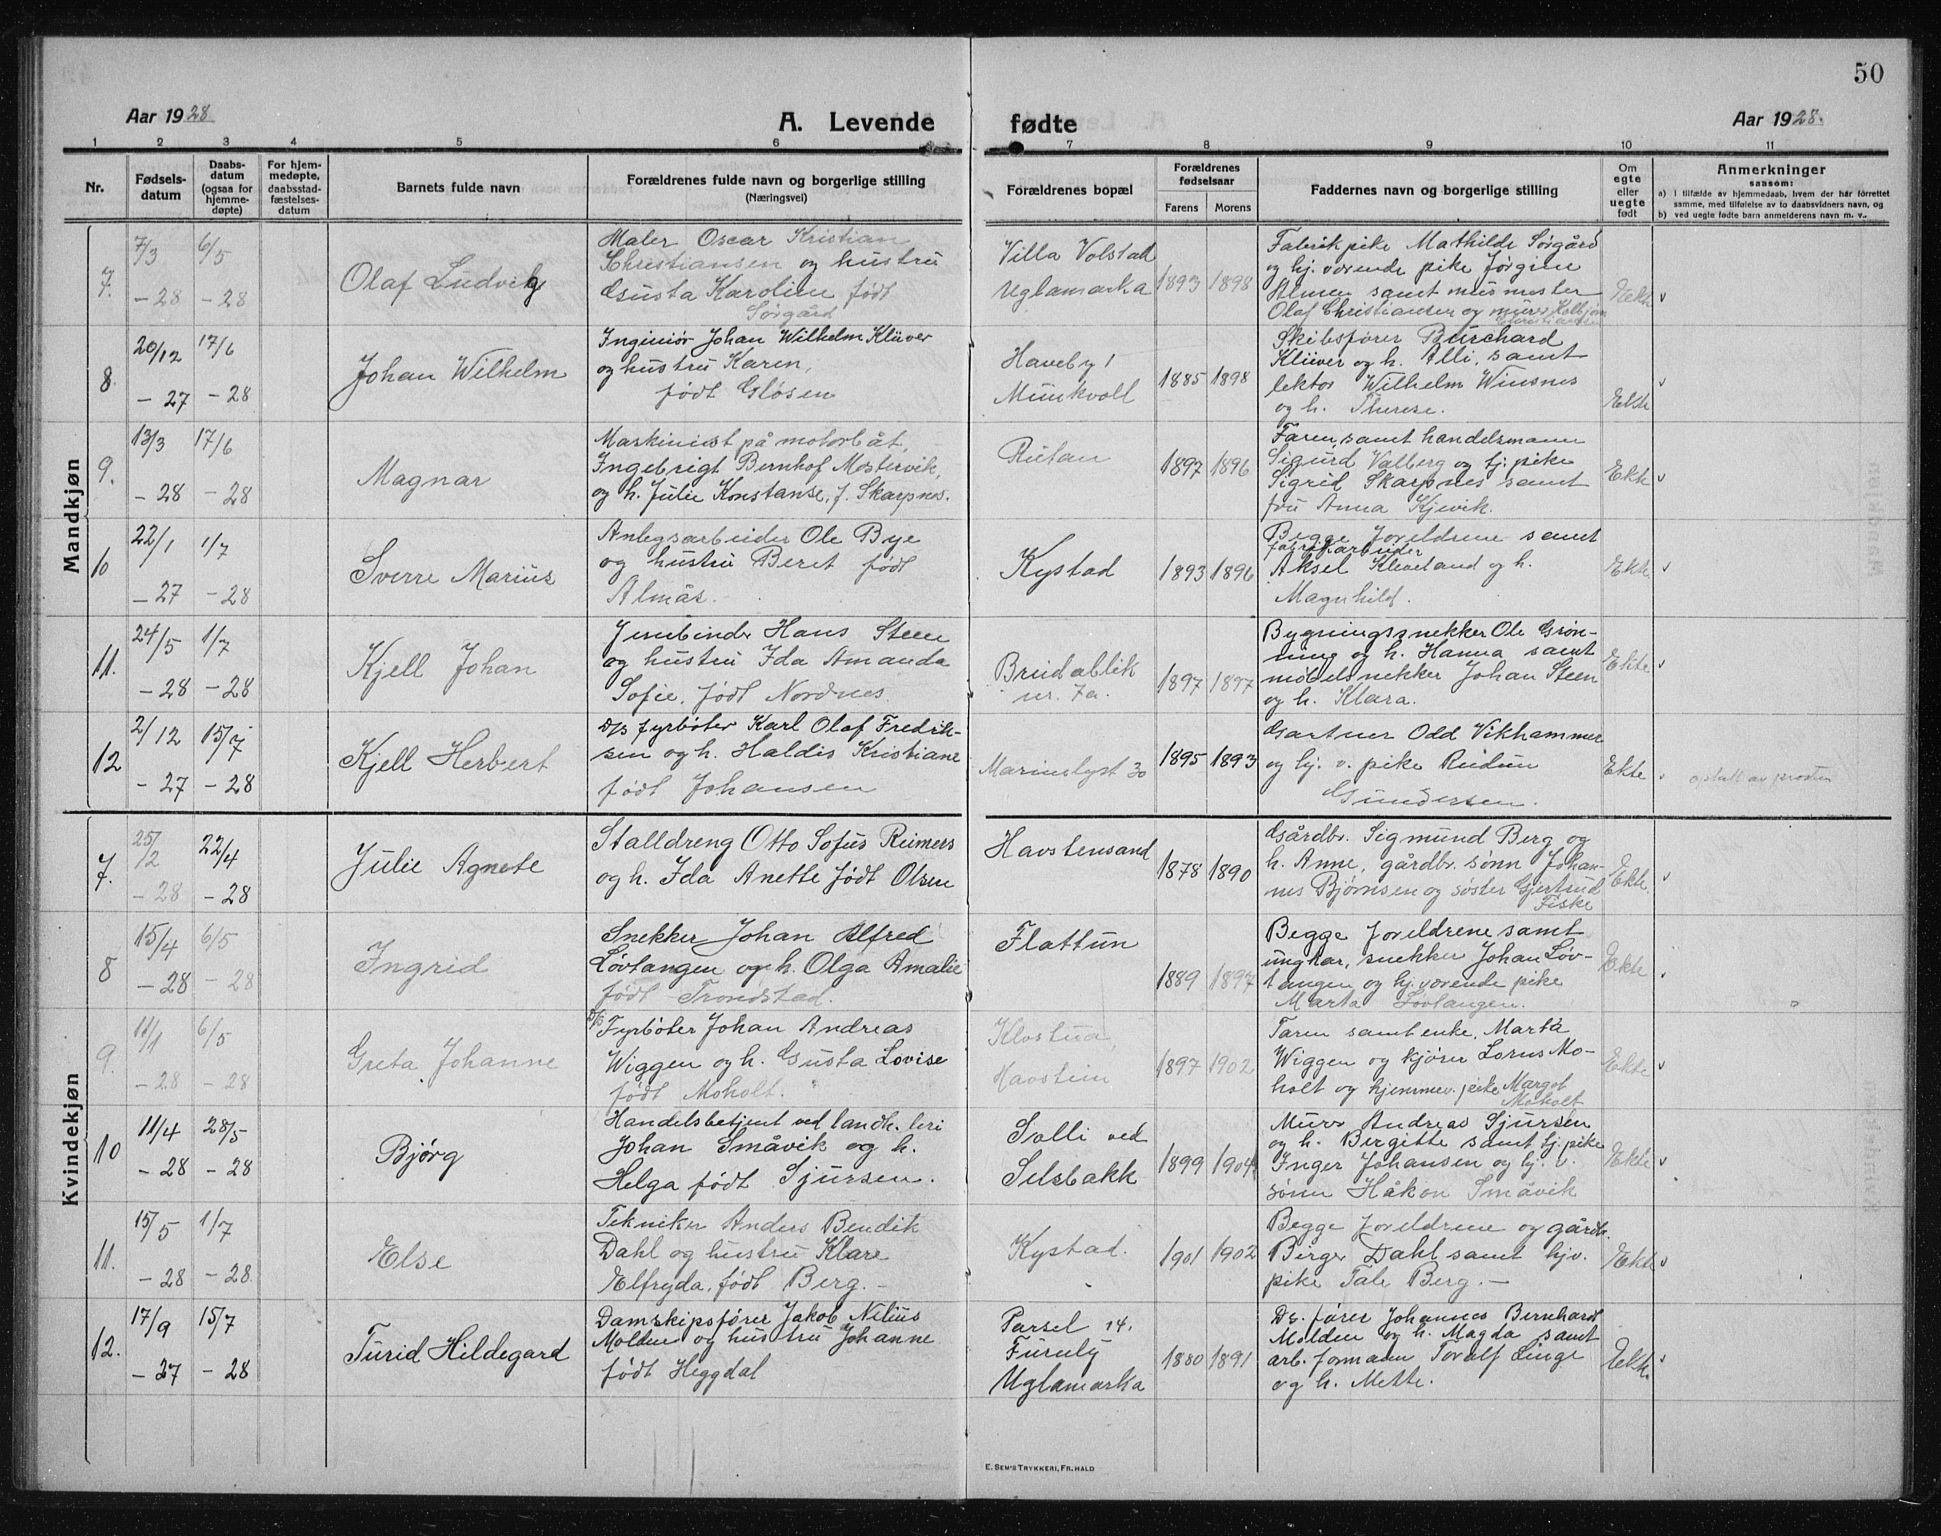 50
Aar 1928
A. Levende
fødte
Aar 1928.
1 2 3 4 5 6 7 8 9 10 11
Nr.
Fødsels-
datum
Daabs-
datum
(ogsaa for
hjemme-
døpte)
For hjem-
medøpte,
daabsstad-
fæstelses-
datum
Barnets fulde navn
Forældrenes fulde navn og borgerlige stilling
(Næringsvei)
Forældrenes bopæl
Forældrenes
fødselsaar
Farens Morens
Faddernes navn og borgerlige stilling
Om
egte
eller
uegte
født
Anmerkninger
saasom:
a) I tilfælde av hjemmedaab, hvem der har forrettet
samme, med tilføielse av to daabsvidners navn, og
b) ved uegte fødte barn anmelderens navn m. v.
Mandkjøn
7.
7/3
- 28
6/5
- 28
Olaf Ludvig
Maler Oscar Kristian
Christiansen og hustru
Gusta Karoline født
Sørgård
Villa Volstad
Uglamarka
1893 1898
Fabrikpike Mathilde Sørgård
og hj. værende pike Jørgine
Almen samt musmester
Olaf Christiansen og murer Kolbjørn
Christiansen
Ekte
8.
20/12
- 27
17/6
- 28
Johan Wilhelm
Ingeniør Johan Wilhelm Klüver
og hustru Karen,
født Gløsen
Haveby 1
Munkvoll
1885 1898
Skibsfører Burchard
Klüver og h. Alli, samt
lektor Wilhelm Winsnes
og h. Therese.
Ekte
9.
13/3
- 28
17/6
- 28
Magnar
Maskinist på motorbåt,
Ingebrigt Bernhof Mostervik,
og h. Julie Konstanse, f. Skarpnes.
Rutan
1897 1896
Faren, samt handelsmann
Sigurd Valberg og hj. pike
Sigrid Skarpnes samt
fru Anna Kjevik.
Ekte
10
22/1
- 27
1/7
- 28
Sverre Marius
Anlegsarbeider Ole Bye
og hustru Beret født
Almås.
Kystad
1893 1896
Begge foreldrene samt
fabrikarbeider
Aksel Kleveland og h.
Magnhild.
Ekte
11.
24/5
- 28
1/7
- 28
Kjell Johan
Jernbinder Hans Steen
og hustru Ida Amanda
Sofie, født Nordnes.
Brudablik
nr. 7a.
1897 1897
Bygningssnekker Ole Grøn-
ning og h. Hanna samt
møbelsnekker Johan Steen
og h. Klara.
Ekte
12
2/12
- 27
15/7
- 28
Kjell Herbert
D/S fyrbøter Karl Olaf Fredrik-
sen og h. Haldis Kristiane
født Johansen
Marinelyst 30
1895 1893
Gartner Odd Vikhammer
og hj. v. pike Reidun
Gundersen.
Ekte
opstalt av prosten
Kvindekjøn
7.
25/2
- 28
22/4
- 28
Julie Agnete
Stalldreng Otto Sofus Reimers
og h. Ida Anette født Olsen
Havstensand
1878 1890
Gårdbr. Sigmund Berg og
h. Anne, gårdbr. sønn Johan-
nes Bjørnsen og søster Gjertrud
Fiske
Ekte
8
15/4
- 28
6/5
- 28
Ingrid
Snekker Johan Alfred
Løvtangen og h. Olga Amalie
født Trondstad.
Flattun
1889 1897
Begge foreldrene samt
ungkar, snekker Johan Løv-
tangen og hj. værende pike
Marta Løvtangen.
Ekte
9.
11/1
- 28
6/5
- 28
Greta Johanne
D/S Fyrbøter Johan Andreas
Wiggen og h. Gusta Lovise
født Moholt.
Klostua,
Havstein
1897 1902
Faren samt enke, Marta
Wiggen og kjører Lorns Mo-
holt og hjemmev. pike Margot
Moholt
Ekte
10
11/4
- 28
28/5
- 28
Bjørg
Handelsbetjent ved landh. leri
Johan Småvik og h.
Helga født Sjursen.
Solli ved
Selsbakk
1899 1904
Murer Andreas Sjursen
og h. Bergitte samt hj. pike
Inger Johansen og hj. v.
sønn Håkon Småvik
Ekte
11.
15/5
- 28
1/7
- 28
Else
Tekniker Anders Bendik
Dahl og hustru Klare
Elfryda, født Berg.
Kystad.
1901 1902
Begge foreldrene og gårdb.
Birger Dahl samt hjv.
pike Tale Berg. -
Ekte
12.
17/9
- 27
15/7
- 28
Turid Hildegard
Damskipsfører Jakob Nilius
Molden og hustru Johanne
født Heggdal
Parsel 14.
Furuly
Uglamarka
1880 1891
Ds. fører Johannes Bernhard
Molden og h. Magda samt
arb. formann Toralf Linge
og h. Mette.
Ekte
E. Sem's Trykkeri, Fr.hald